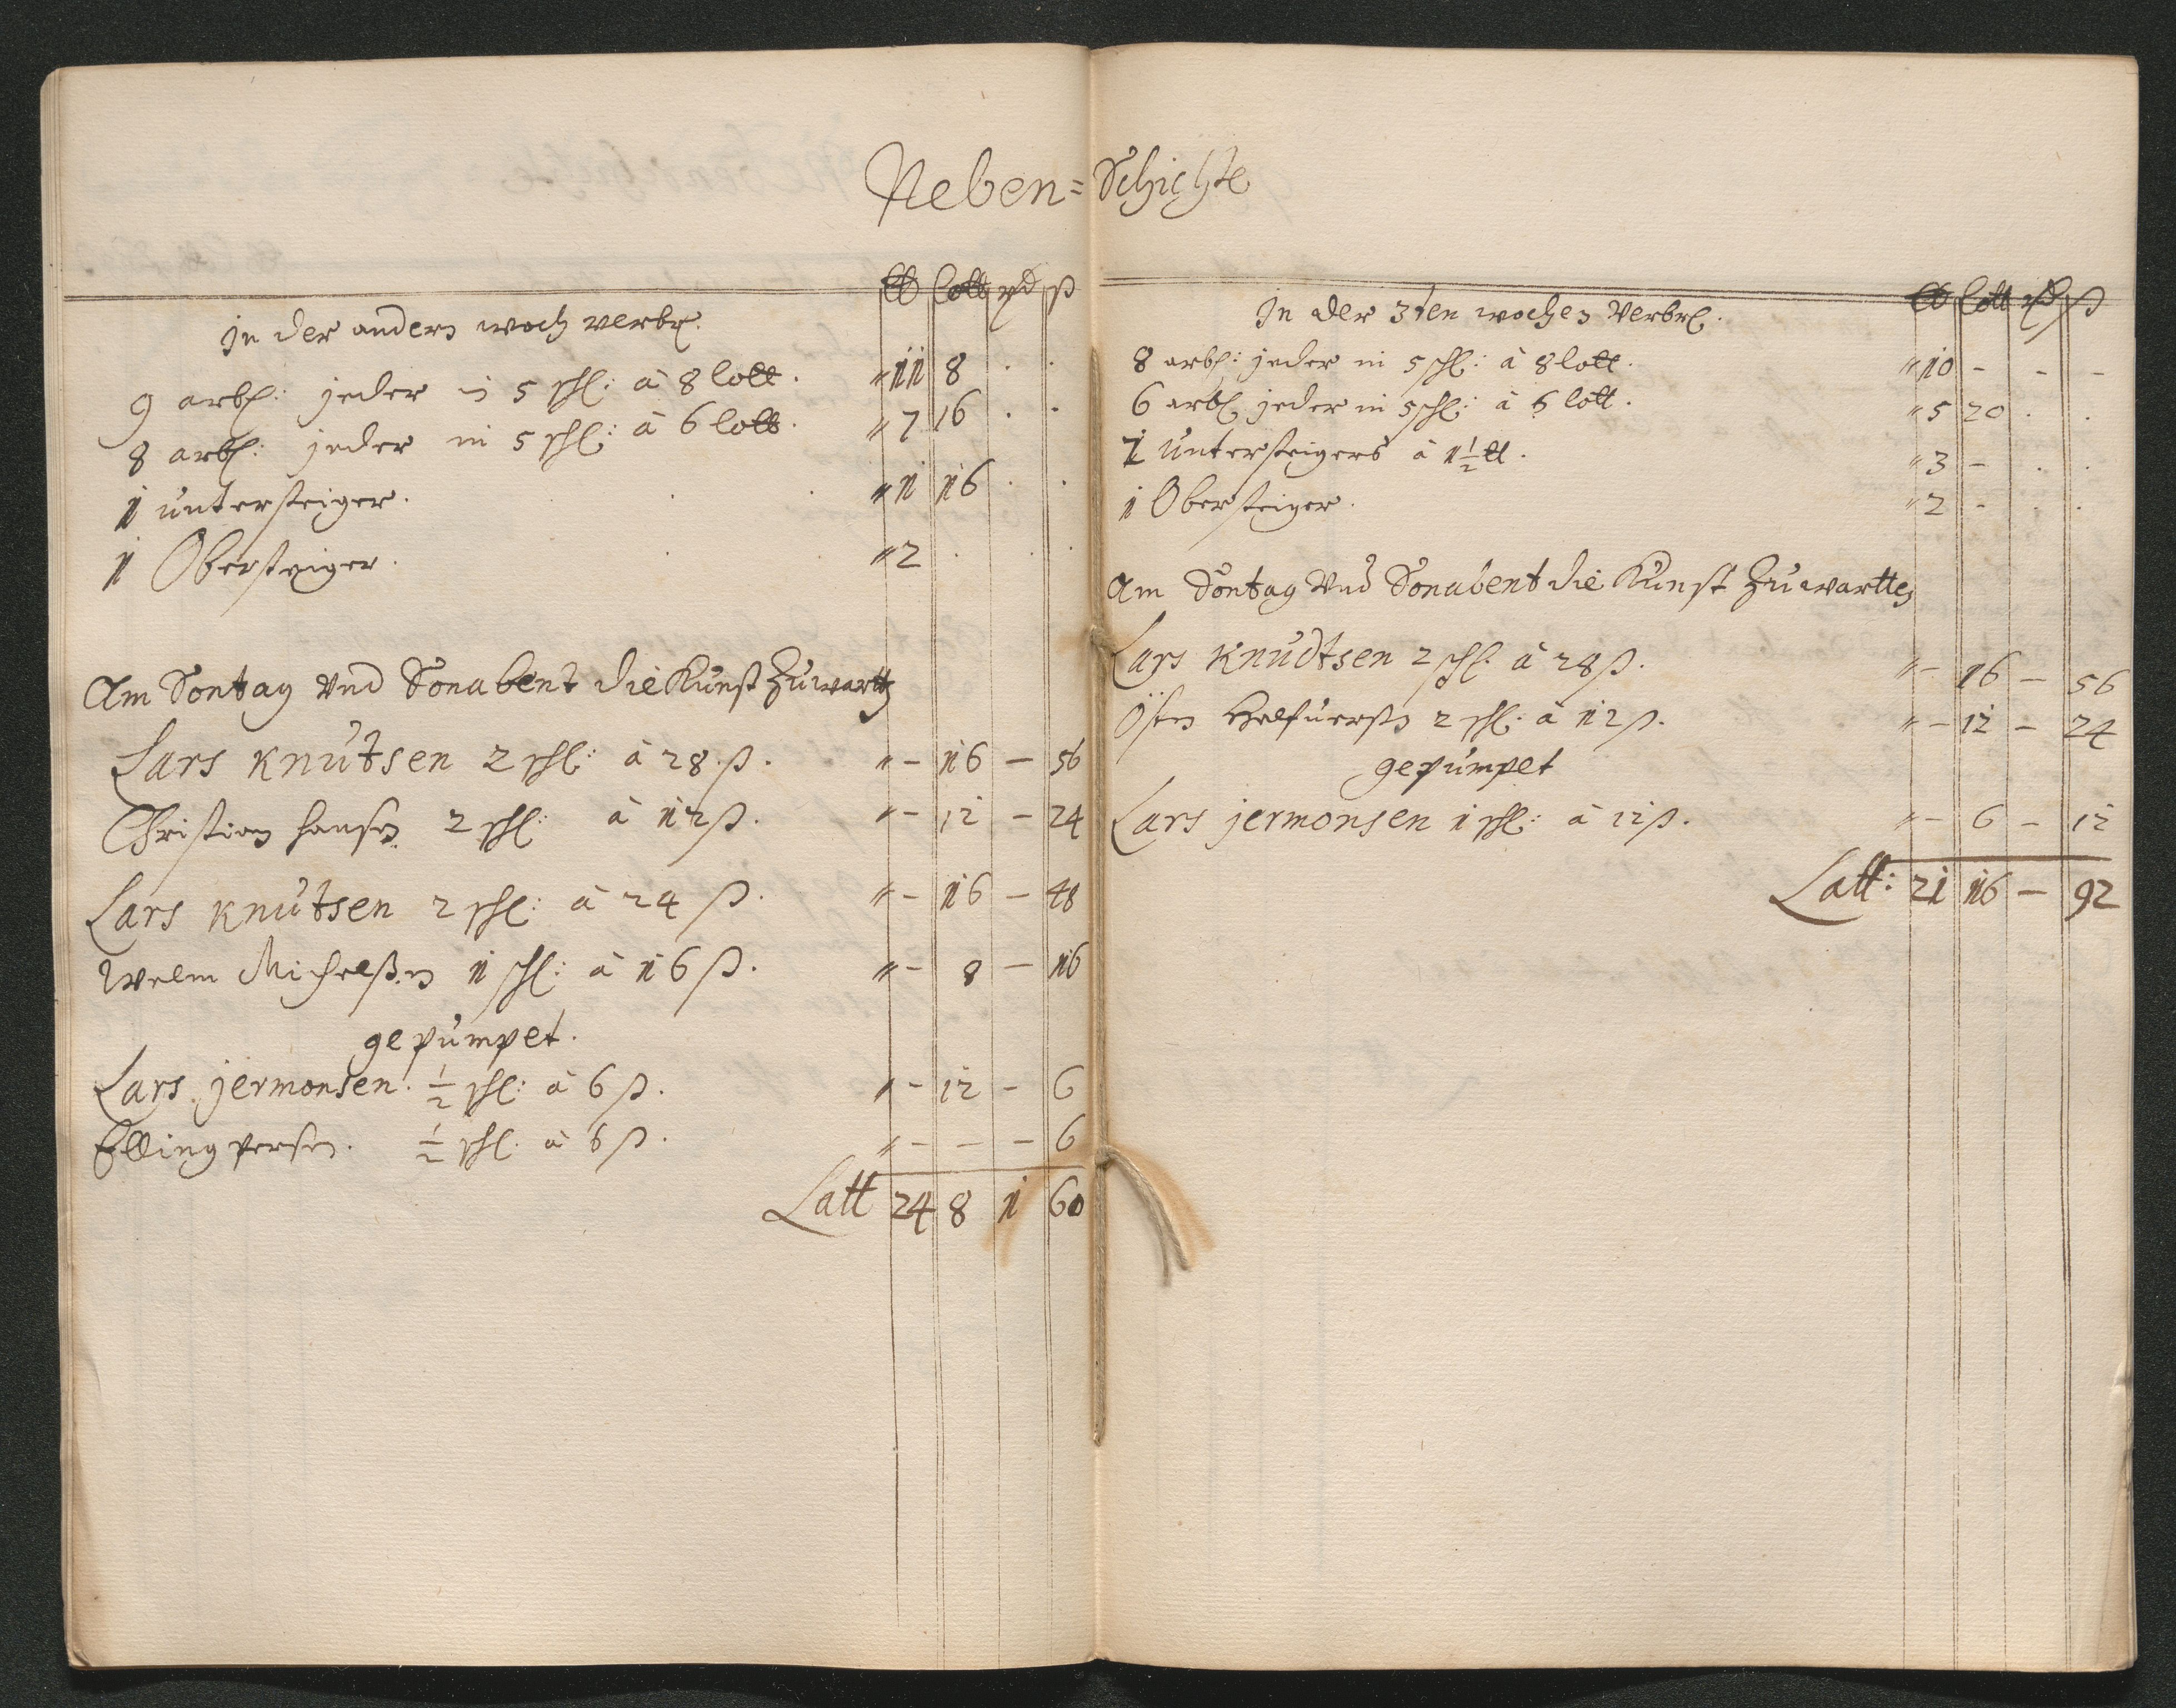 Neben= Schichte
lb lott rd ß
In der andern woch verbr.
9 arb: jeder in 5 schl: à 8 lott. " 11 8 . .
8 arb: jeder in 5 schl: à 6 lott. " 7 16 . .
1 untersteiger. " 1 16 . .
1 Obersteiger. " 2 . . .
Am Sontag und Sonabent die Kunst zuwartten
Lars Knutsen 2 schl: à 28 ß. " - 16 - 56
Christian hansen 2 schl: à 12 ß. " - 12 - 24
Lars Knutsen 2 schl: à 24 ß. " - 16 - 48
Welm Michelßen 1 schl: à 16 ß. " - 8 - 16
gepumpet.
Lars jermonsen. 1/2 schl: à 6 ß. " - 12 - 6
Elling persen. 1/2 schl. à 6 ß. " - - - 6
Latt 24 8 1 60
lb lott rd ß
In der 3ten wochen verbr.
8 arb: jeder in 5 schl: à 8 lott. " 10 - - -
6 arb jeder in 5 schl: à 6 lott. " 5 20 . .
2 untersteigers à 1 1/2 lb. " 3 - . .
1 Obersteiger. " 2 - . .
Am Sontag und Sonabent die Kunst zuwartten
Lars Knudtsen 2 schl. à 28 ß. " - 16 - 56
Östen 2 schl: à 12 ß. " - 12 - 24
gepumpet
Lars jermonsen 1 schl: à 12 ß. " - 6 - 12
Latt: 21 16 - 92